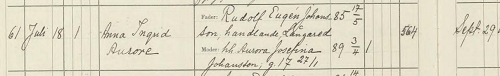 Fader: Rudolf Eugén Johans- 85 17/5
61 Juli 18 1 Anna Ingrid son, handlande, Långared 564 Sept. 29
Aurore Moder: hh. Aurora Josefina 89 3/4 1
Johansson; g. 17 27/11